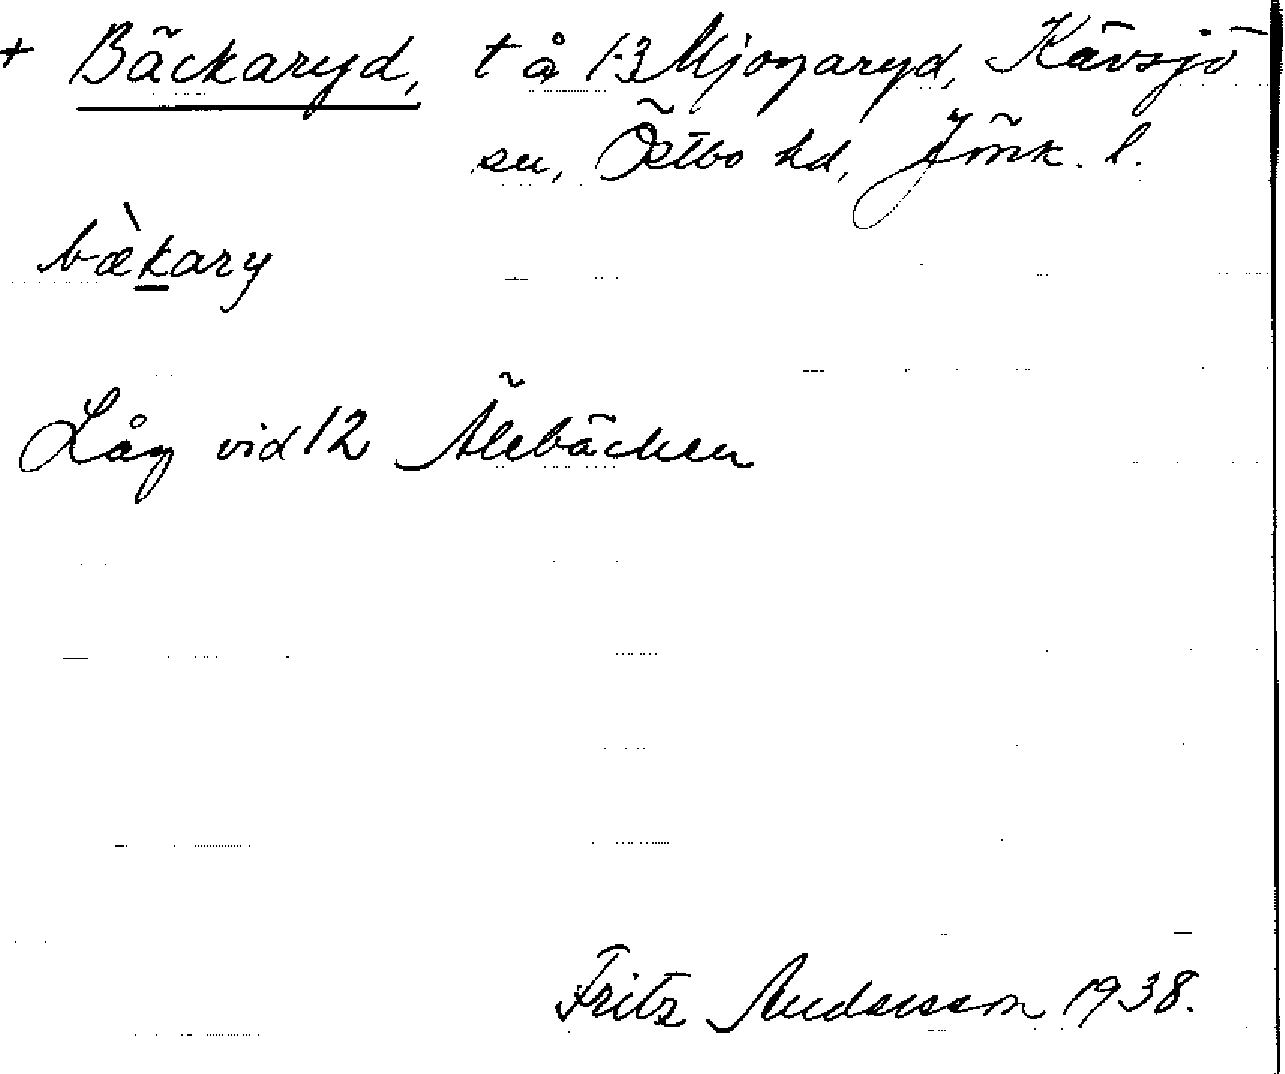 + Bäckaryd, t å 13 Mjogaryd, Kävsjö
sn, Östbo hd, Jönk. l.
bæ̀kary
Låg vid 12 Älebäcken
Fritz Andersson 1938.